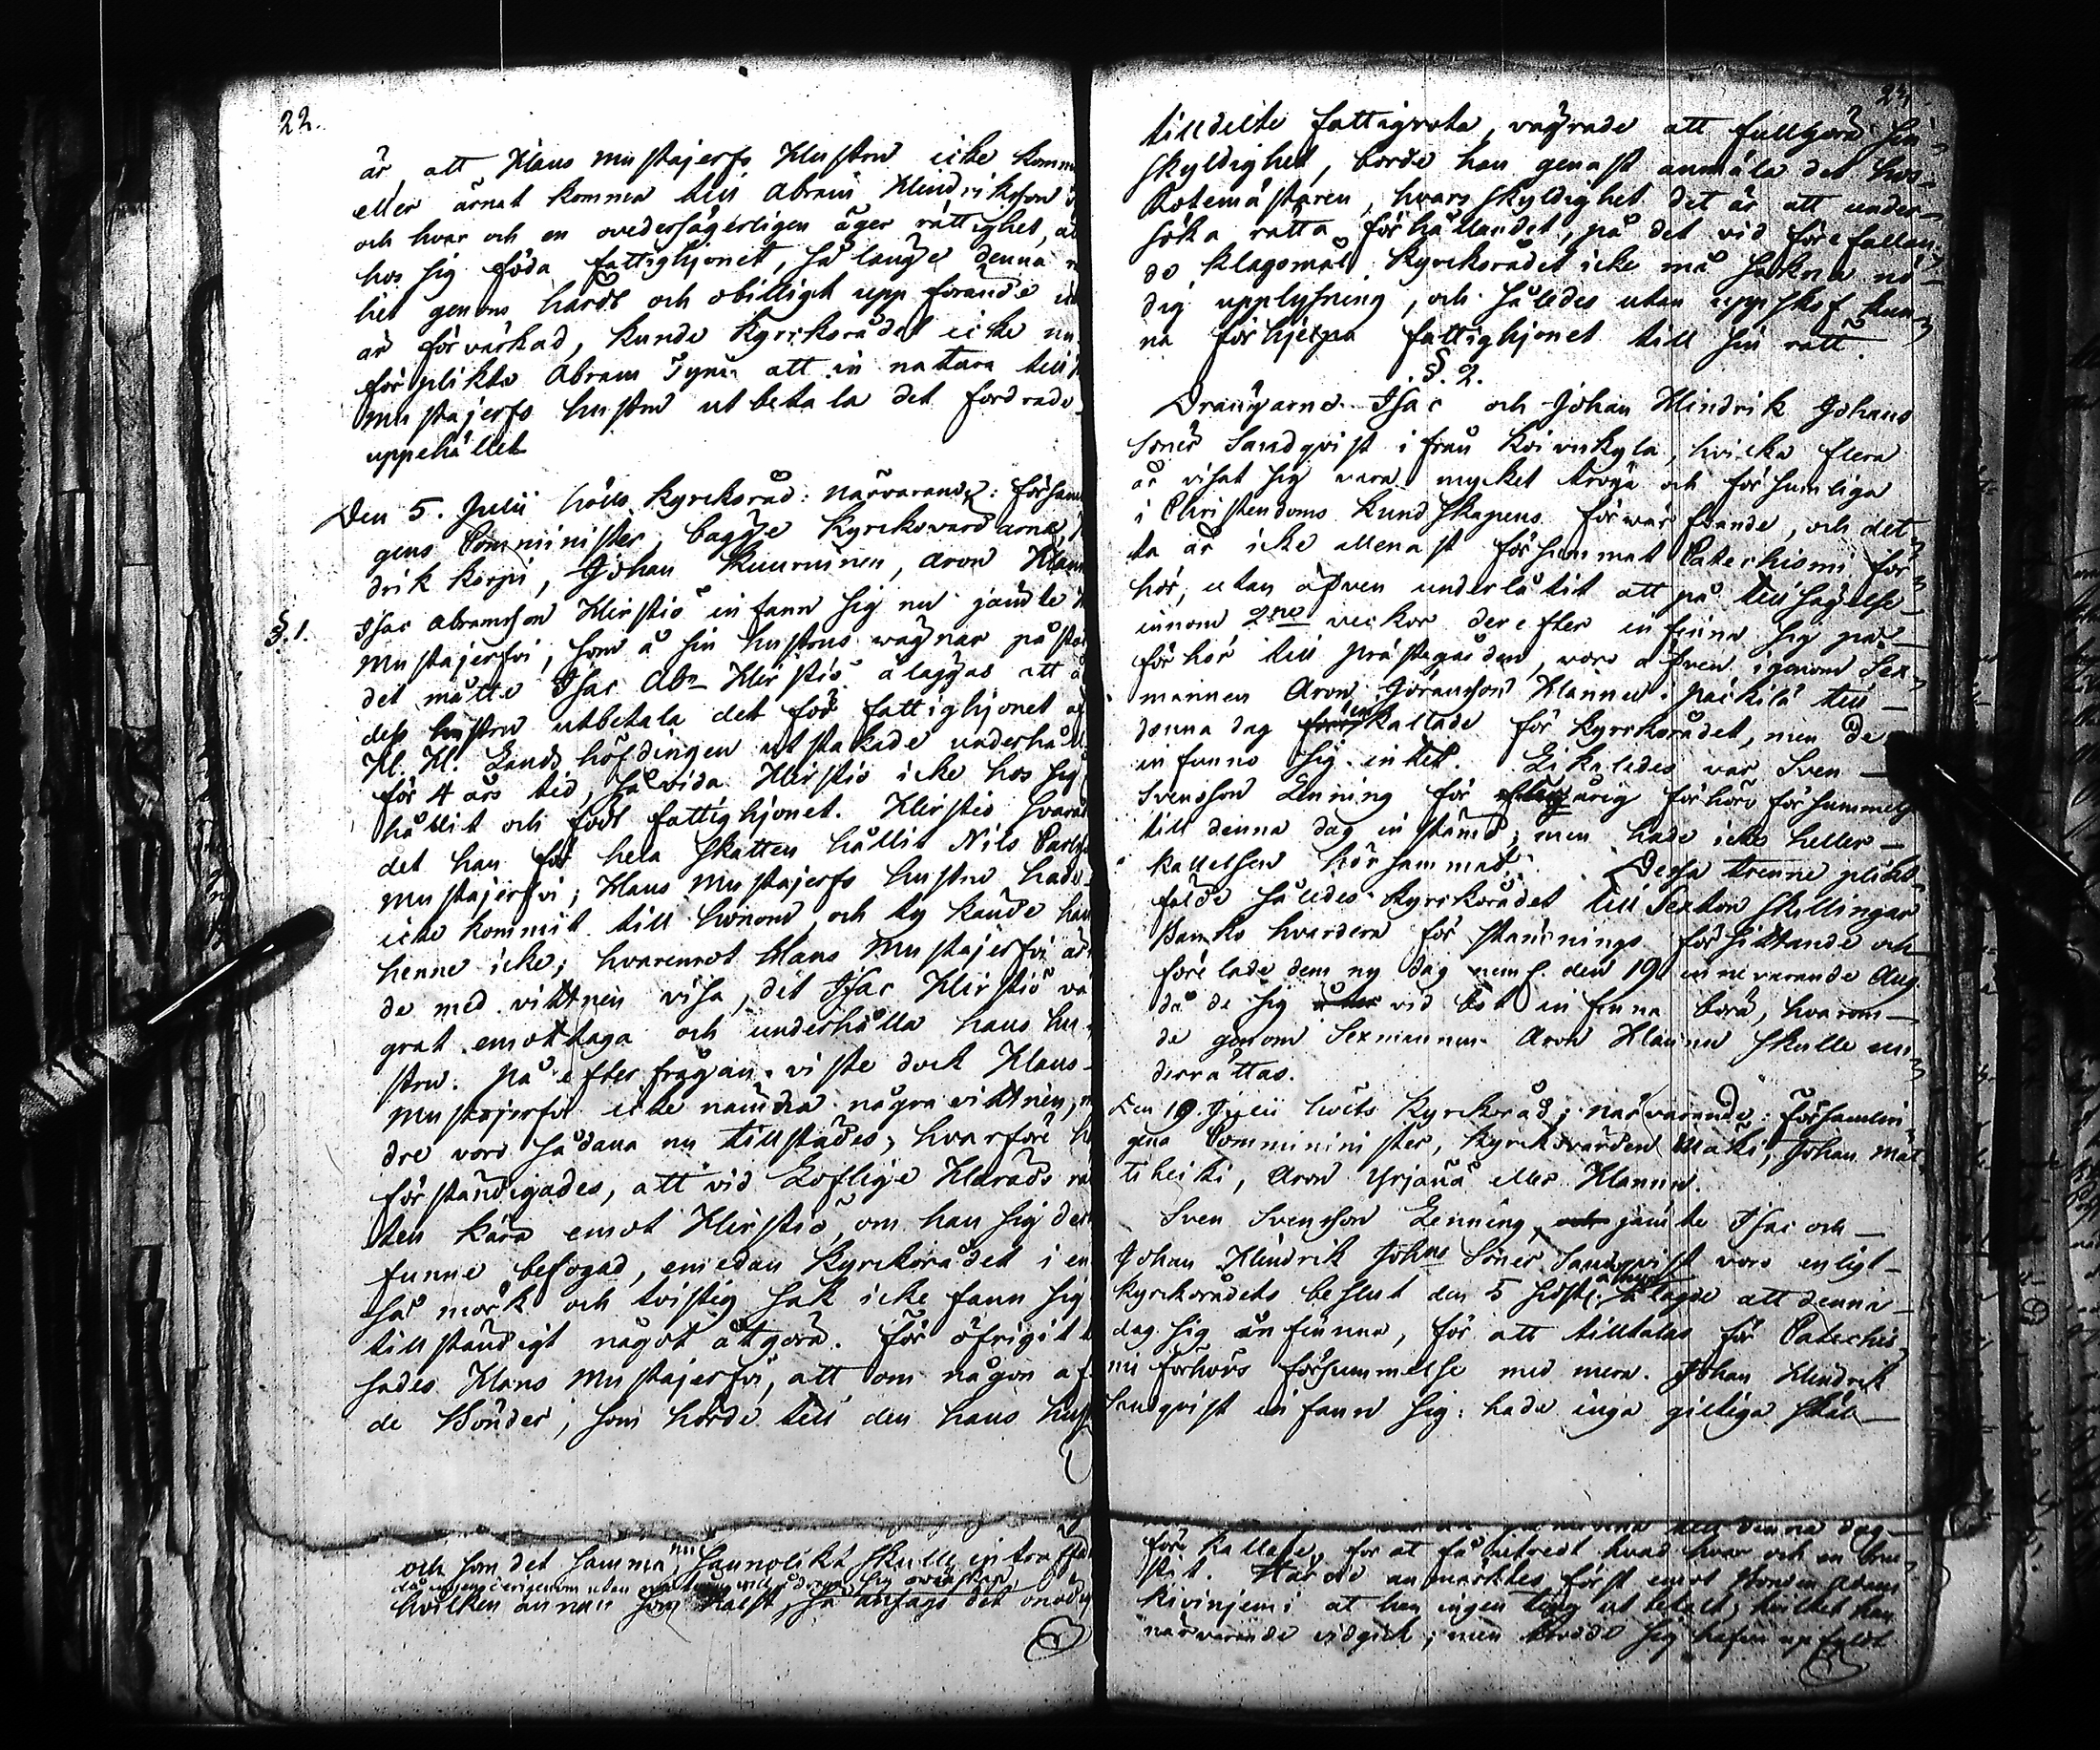 22.
är, att Klaus Mustajerfs Hustru icke komm
eller ärnat komma till Abram Hindriksson
och hvar och en ovedersägerligen äger rättighet, at
hos sig föda fattighjonet, så länge denna
het genom hårdt och obilligt uppförande
är förvärkad, kunde Kyrkorådet icke nu
förplikta Abram Tyni att in natura till
Mustajerfs hustru utbetala det fordrade
uppehället
Den 5. Julii hölls Kyrkoråd: närvarande: försam
gens Comminister, bägge Kyrkovärdarne,
drik Korpi, Johan Kuurninen, Aron Hann
§. 1.
Isac Abramsson Kirstiö infann sig nu jämte
Mustajerfvi, som å sin hustrus wägnar på
det måtte Isac Abrn Kirstiö åläggas att
dess hustru utbetala det för fattighjonet af
H. H. Landshöfdingen utstakade underhåll
för 4 års tid, såvida Kirstiö icke hos sig
hållit och födt fattighjonet. Kirstiö svarad
det han för hela skatten hållit Nils Carls
Mustajerfvi; Klaus Mustajerfs hustru hade
icke kommit till honom, och ty kände han
henne icke; hvaremot Klaus Mustajerfvi
de med vittnen visa, det Isac Kirstiö vä
grat emottaga och underhålla hans hu
stru. På efterfrågan viste dock Klaus
Mustajerfvi icke nämna några vittnen,
dre voro sådana nu tillstädes; hvarföre h
förständigades, att vid Loflige Härads rä
ten kära emot Kirstiö, om han sig der
funne befogad, emedan Kyrkorådet i en
så mörk och tvistig sak icke fann sig
tillständigt något åtgöra. För öfrigit
sades Klaus Mustajerfvi, att om någon af
de Bönder, som hörde till den hans hus
och som det samma, nu sannolikt skulle inträffa
hvilken annan som hälst, så ansågs det onödi
23.
tilldelte fattigrota, vägrade att fullgöra sin
skyldighet, borde han genast anmäla det hos
Rotemästaren, hvars skyldighet det är att under-
söka rätta förhållandet, på det vid förefallan
de klagomål Kyrkorådet icke må sakna nö-
dig upplysning, och således utan uppskof kun
na förhjelpa fattighjonet till sin rätt.
§. 2.
Drängarne Isac och Johan Hindrik Johans
Söner Sandqvist ifrån Koivukyla, hvilka flera
år visat sig vara mycket tröga och försumliga
i Christendoms Kundskapens förvärfvande, och det
ta år icke allenast försummat Catechismi för
hör, utan äfven underlåtit att på tillsägelse
innom 2ne veckor derefter infinna sig på
förhör till prästegården, voro äfven igenom Sex-
mannen Aron Göransson Hannu Päkkilä till
denna dag inkallade för Kyrkorådet, men de
infunno sig intet. Likaledes var Sven
Svensson Lenning för årig förhörs försummelse
till denna dag instämd; men hade icke heller
kallelsen hörsammat. Dessa trenne plikt-
fälde således Kyrkorådet till Sexton skillingar
Banko hvardera för stämnings försittande och
förelade dem ny dag neml. den 19 innevarande Aug.
då de sig vid bot infinna borde, hvarom
de genom Sexmannen Aron Hannu skulle un
derrättas.
Den 19. Julii hölts Kyrkoråd; närvarande: Församlin
gens Comminister, Kyrkovärden Mäki, Johan Mat
tiheiki, Aron Yrjänä eller Hannu.
Sven Svensson Lenning, jämte Isac och
Johan Hindrik Johns Söner Sandqvist voro enligt
Kyrkorådets beslut den 5 sidstl. ålagde att denna
dag sig infinna, för att tilltalas för Catechis
mi förhörs försummelse med mera. Johan Hindrik
Sandqvist infann sig: hade inga giltiga skäl
till denna dag
före kallade, för at få utredt hvad hvar och en
stit. Härvid anmärktes först emot Bonden Adam
Kivinjemi at han ingen ting utbetalt; hvilket han
närvarande vidgick; men trodde sig hafva upfyldt